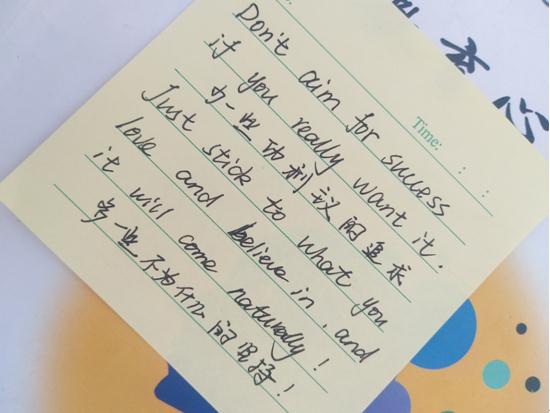 Time: : :
Don't aim for success
if you really want it.
少一些功利议的追求
Just stick to what you
love and believe in, and
it will come naturally!
多一些不为什么的坚持!
心